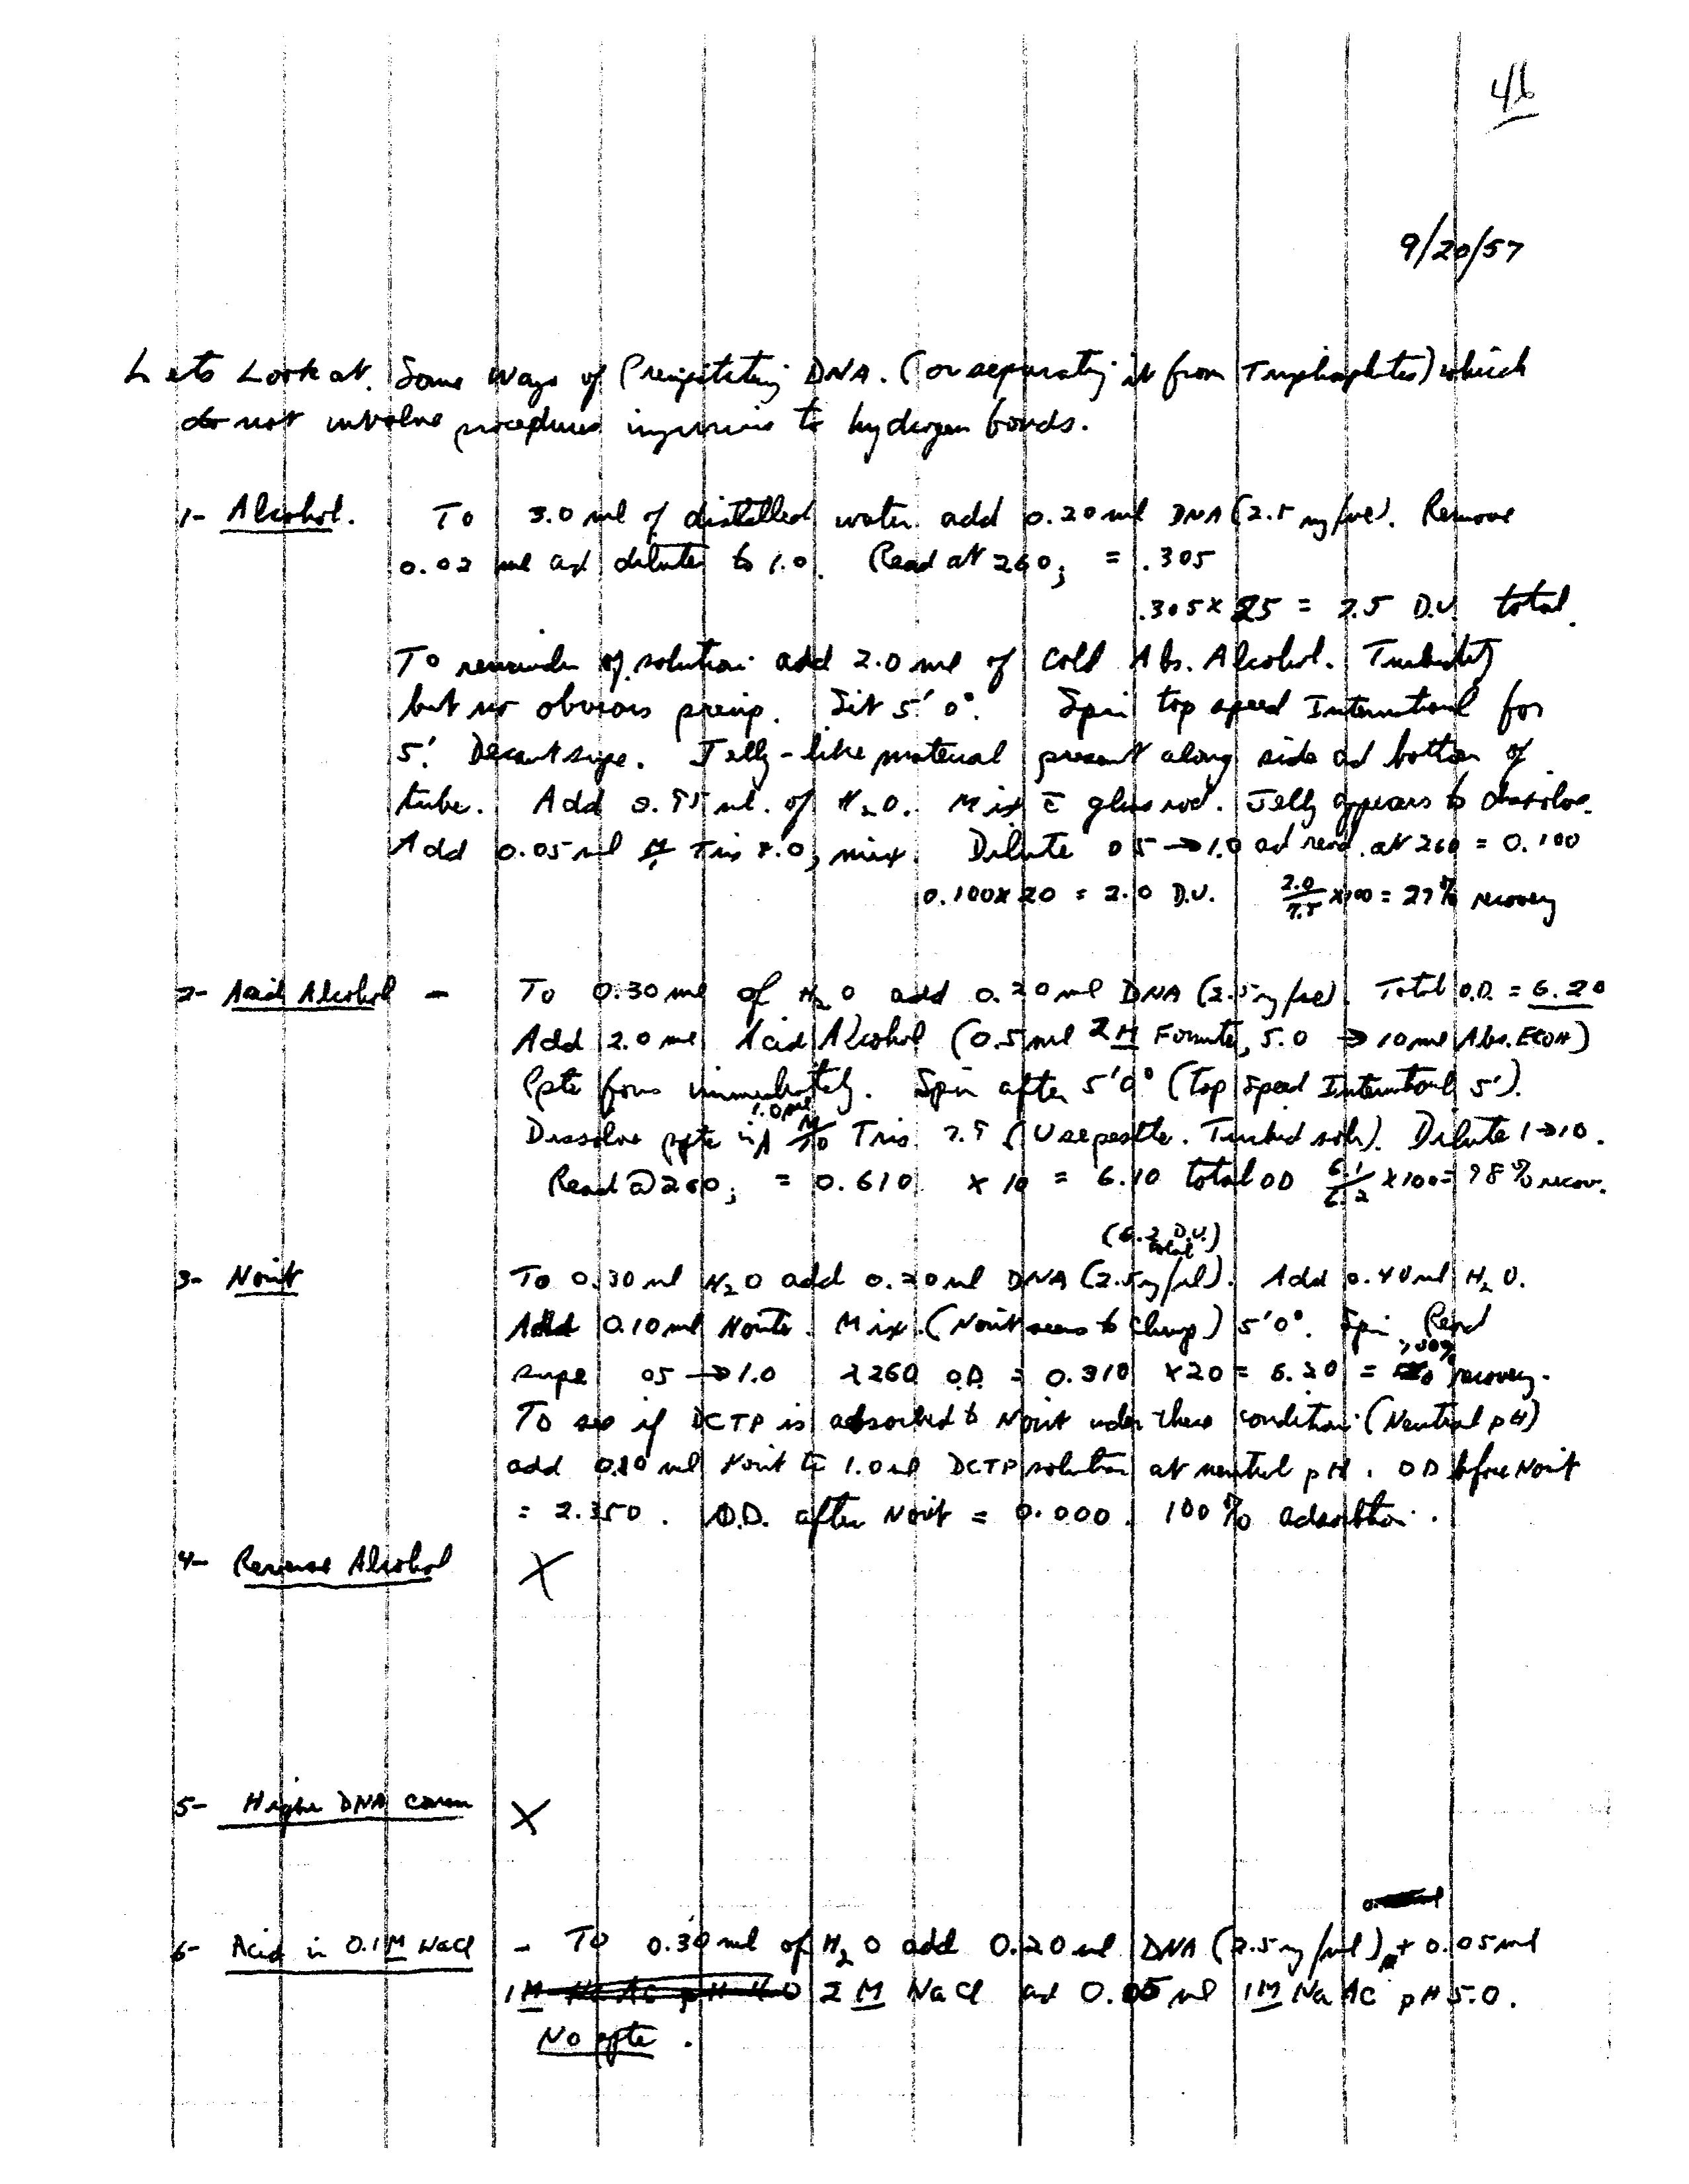 46
9/20/57
Lets Look at Some Ways of Precipitating DNA. (or separating it from Triphosphates) which
do not involve procedures injurious to hydrogen bonds.
1- Alcohol. To 3.0 ml of distilled water add 0.20 ml DNA (2.5 mg/ml). Remove
0.02 ml and dilute to 1.0. Read at 260; = .305
.305 x 25 = 7.5 D.U. total.
To remainder of solution add 2.0 ml of cold Abs. Alcohol. Turbidity
but no obvious precip. Sit 5' 0°. Spin top speed International for
5'. Decant supe. Jelly-like material present along side and bottom of
tube. Add 0.95 ml. of H2O. Mix c̄ glass rod. Jelly appears to dissolve.
Add 0.05 ml M Tris 8.0, mix. Dilute 05 → 1.0 and read at 260 = 0.100
0.100 x 20 = 2.0 D.U. 2.0/7.5 x 100 = 27% recovery
2- Acid Alcohol - To 0.30 ml of H2O add 0.20 ml DNA (2.5 mg/ml). Total O.D. = 6.20
Add 2.0 ml Acid Alcohol (0.5 ml 2M Formate, 5.0 → 10 ml Abs. EtOH)
Ppte forms immediately. Spin after 5' 0° (Top Speed International 5').
Dissolve ppte in 1.0 ml M/10 Tris 7.5 (Use pestle. Turbid soln). Dilute 1→10.
Read @ 260; = 0.610 x 10 = 6.10 total OD 6.1/6.2 x 100 = 98% recov.
(6.2 D.U. total)
3- Norit To 0.30 ml H2O add 0.20 ml DNA (2.5 mg/ml). Add 0.40 ml H2O.
Add 0.10 ml Norite. Mix. (Norit seems to clump) 5' 0°. Spin. Read
supe 05 → 1.0 λ260 O.D. = 0.310 x 20 = 6.20 = >100% recovery.
To see if DCTP is adsorbed to Norit under these conditions (Neutral pH)
add 0.10 ml Norit to 1.0 ml DCTP solution at neutral pH. OD before Norit
= 2.350. O.D. after Norit = 0.000. 100% adsorbtion.
4- Reverse Alcohol X
5- Higher DNA concn X
6- Acid in 0.1 M NaCl - To 0.30 ml of H2O add 0.20 ml DNA (2.5 mg/ml) + 0.05 ml
1M Na Ac pH 4.0 2 M NaCl and 0.05 ml 1M NaAc pH 5.0.
No ppte.